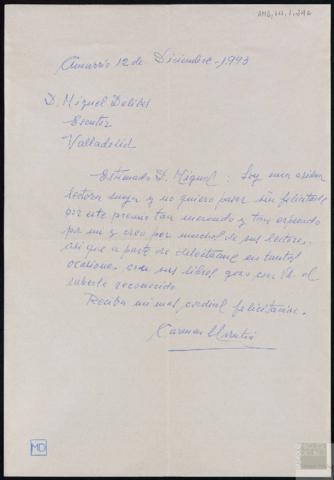 AMD,
12 de Diciembre - 1993
D. Miguel Delibes
Escritor
Valladolid
Estimado D. Miguel: Soy una asidua
lectora suya y no quiero pasar sin felicitarle
por este premio tan merecido y tan esperado
por mi y creo por muchos de sus lectores.
asi que a parte de deleitarme en tantas
ocasiones con sus libros gozo con Vd. al
saberle reconocido.
Reciba mi mas cordial felicitación.
Carmen
MD